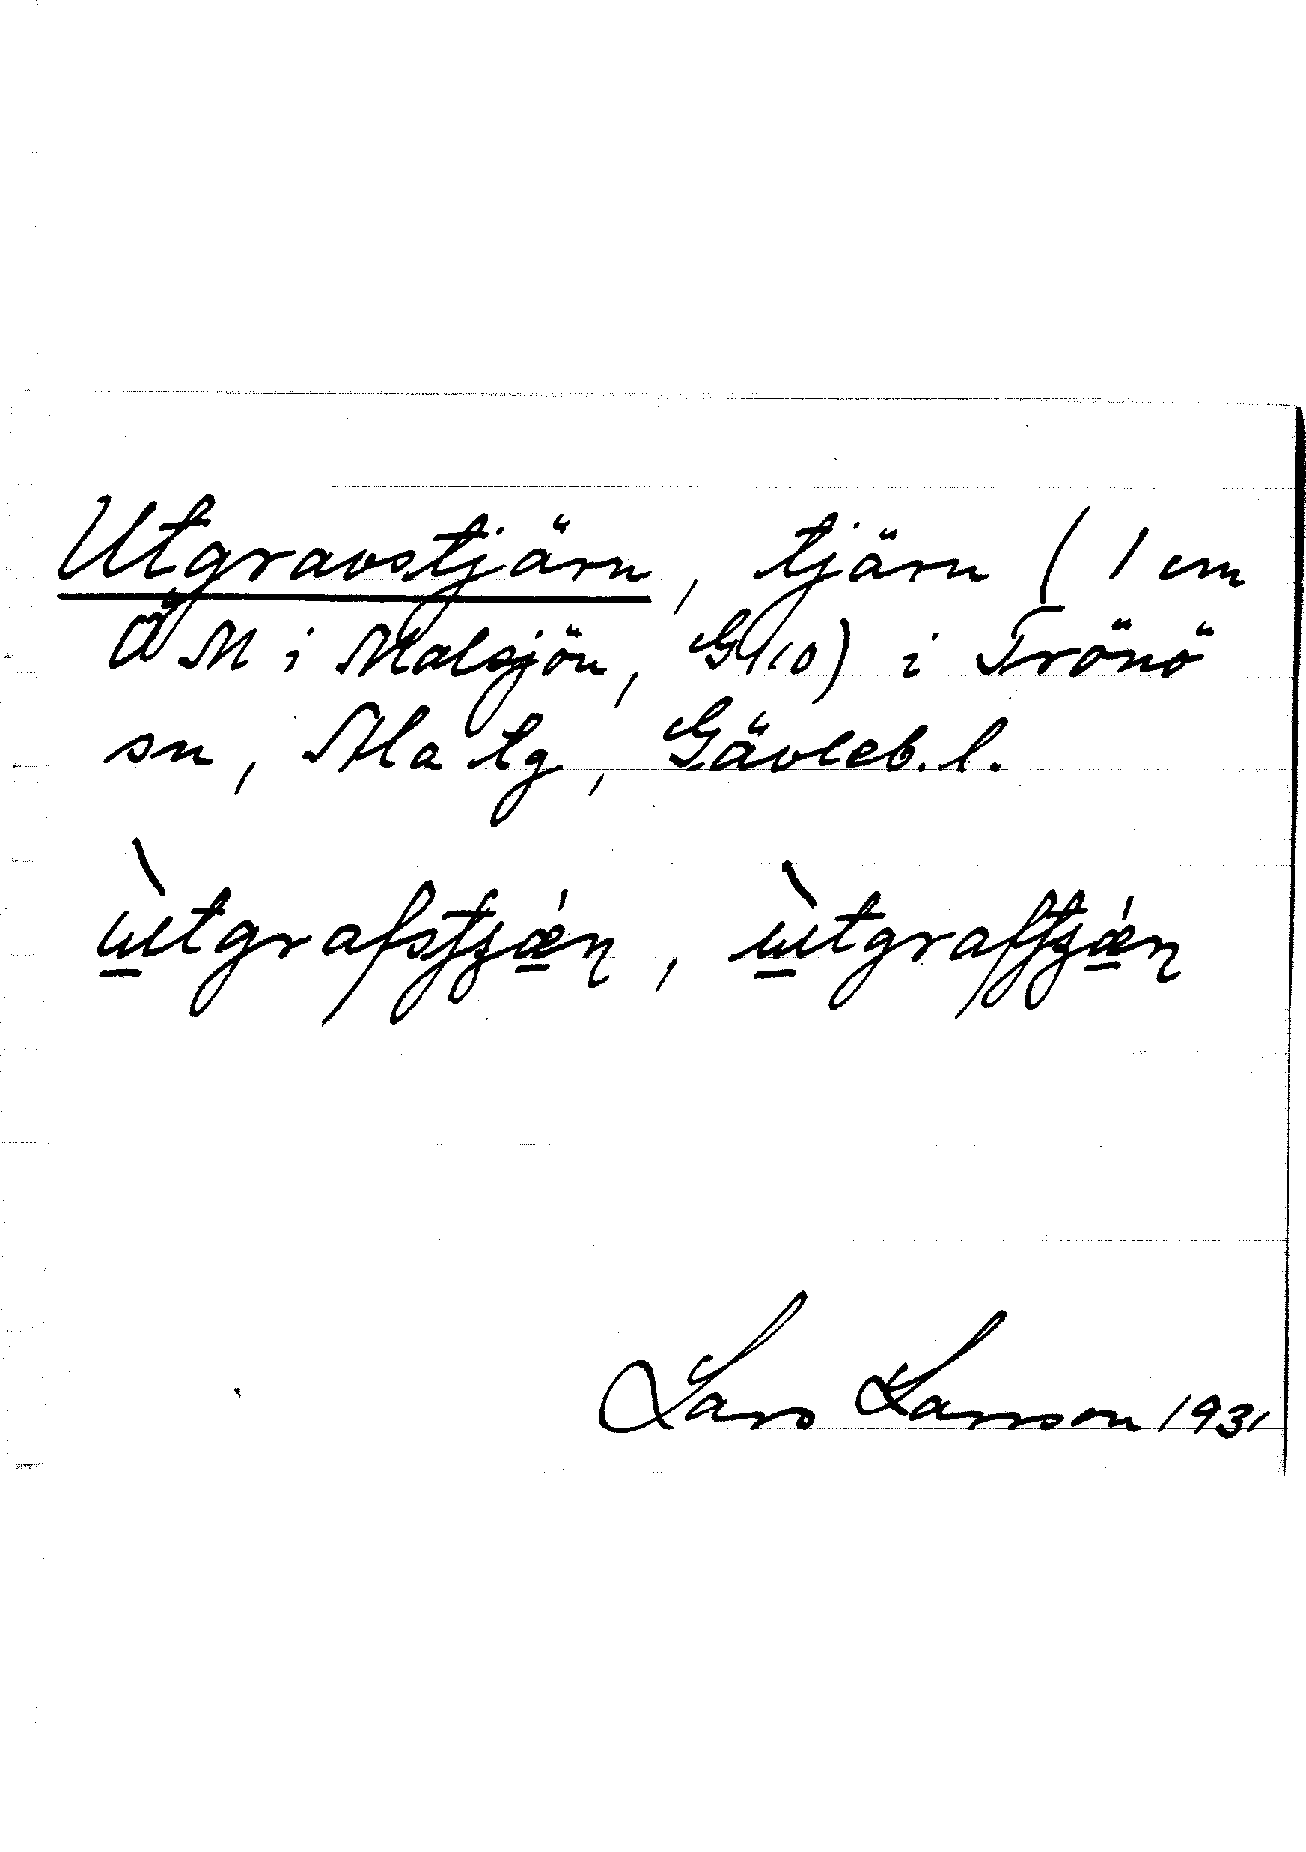 Utgravstjärn, tjärn (1 cm
Ö M i Malsjön, G110) i Trönö
sn, Ala tg, Gävleb. l.
ùtgrafstjǽn, ùtgraftjǽn
Lars Larsson 1931